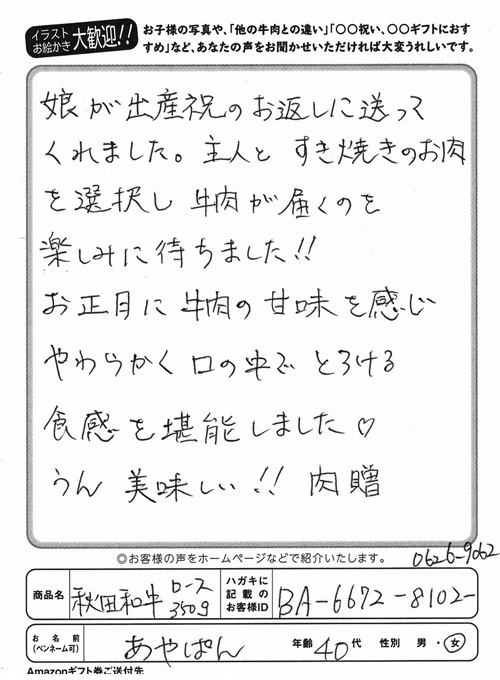 イラスト
お絵かき大歓迎!!
お子様の写真や、「他の牛肉との違い」「〇〇祝い、〇〇ギフトにおす
すめ」など、あなたの声をお聞かせいただければ大変うれしいです。
娘が出産祝のお返しに送って
くれました。主人と すき焼きのお肉
を選択し 牛肉が届くのを
楽しみに待ちました!!
お正月に牛肉の甘味を感じ
やわらかく口の中で とろける
食感を堪能しました♡
うん 美味しい!! 肉贈
◎お客様の声をホームページなどで紹介いたします。
0626-9062
商品名 秋田和牛 ロース 350g
ハガキに記載のお客様ID BA-6672-8102-
お名前(ペンネーム可) あやぱん 年齢 40代 性別 男・女
Amazonギフト券ご送付先